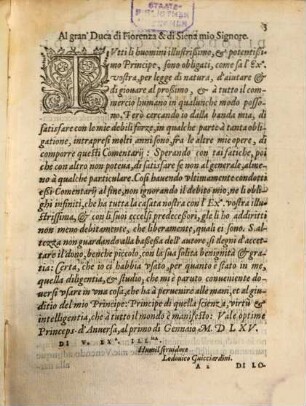 3
STAATS
BIBLIOTHEK
MÜNCHEN
Al gran' Duca di Fiorenza & di Siena mio Signore.
TVtti li huomini illustrissimo, & potentissi
mo Principe, sono obligati, come sa l'Ex.ª
vostra, per legge di natura, d'aiutare &
di giouare al prossimo, & à tutto il com-
mercio humano in qualunche modo posso-
no. Però cercando io dalla banda mia, di
satisfare con le mie debili forze, in qualche parte à tanta obli-
gatione, intrapresi molti anni sono, fra le altre mie opere, di
comporre questi Comentarij: Sperando con tai fatiche, poi
che con altro non potena, di satisfare se non al generale, alme-
no à qualche particulare. Così hauendo vltimamente condotti
essi Comentarij al fine, non ignorando il debito mio, ne li oblighi
infiniti, che ha tutta la casata nostra con l'Ex.ª vostra il-
lustrissima, & con li suoi eccelsi predecessori, gli ho addiritti
non meno debitamente, che liberamente, quali ei sono. S. al-
tezza non guardando alla bassezza dell'autore, si degni d'accet-
tare il dono, benche picciolo, con la sua solita benignità & gra-
tia: Certa, che io ci habbia vsato, per quanto è stato in me,
quella diligentia, & studio, che mi è paruto conuenirsi do-
uersi vsare in vna cosa, che ha à peruenire alle mani, et al giu-
ditio del mio Principe: Principe di quella scienza, virtù &
intelligentia, che à tutto il mondo è manifesto: Vale optime
Princeps. d'Anuersa, al primo di Gennaio M. D LXV.
DI V. EX.ª ILL.ma
Humil seruidore
Lodouico Guicciardini.
A 2 DI LO-